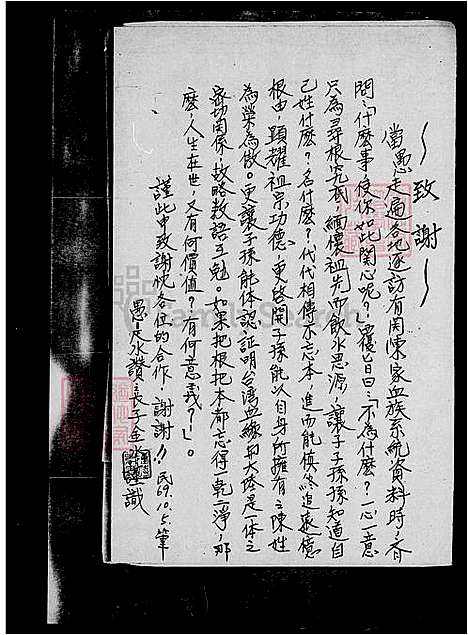 ～致謝～
當愚走遍各地逐訪有関陳家血族系統資料時，有
問：什麼事使你如此関心呢？覆旨曰：不為什麼？一心一意
只為尋根究底，緬懷祖先而飲水思源，讓子子孫孫知道自
己姓什麼？名什麼？代代相傳不忘本，進而能慎終追遠憶
根由，顕耀祖宗功德，更啓開子孫能以自身所擁有之陳姓
為榮為傲。更讓子孫能体認，証明台湾血緣与大陸是一体之
密切関係，故略数語互勉。如果把根把本都忘得乾一淨，那
麼，人生在世，又有何價值？有何意義？」。
謹此申致謝忱各位的合作，謝謝!!
愚 長子金水謹識
民69.10.5.筆
FamilySearch